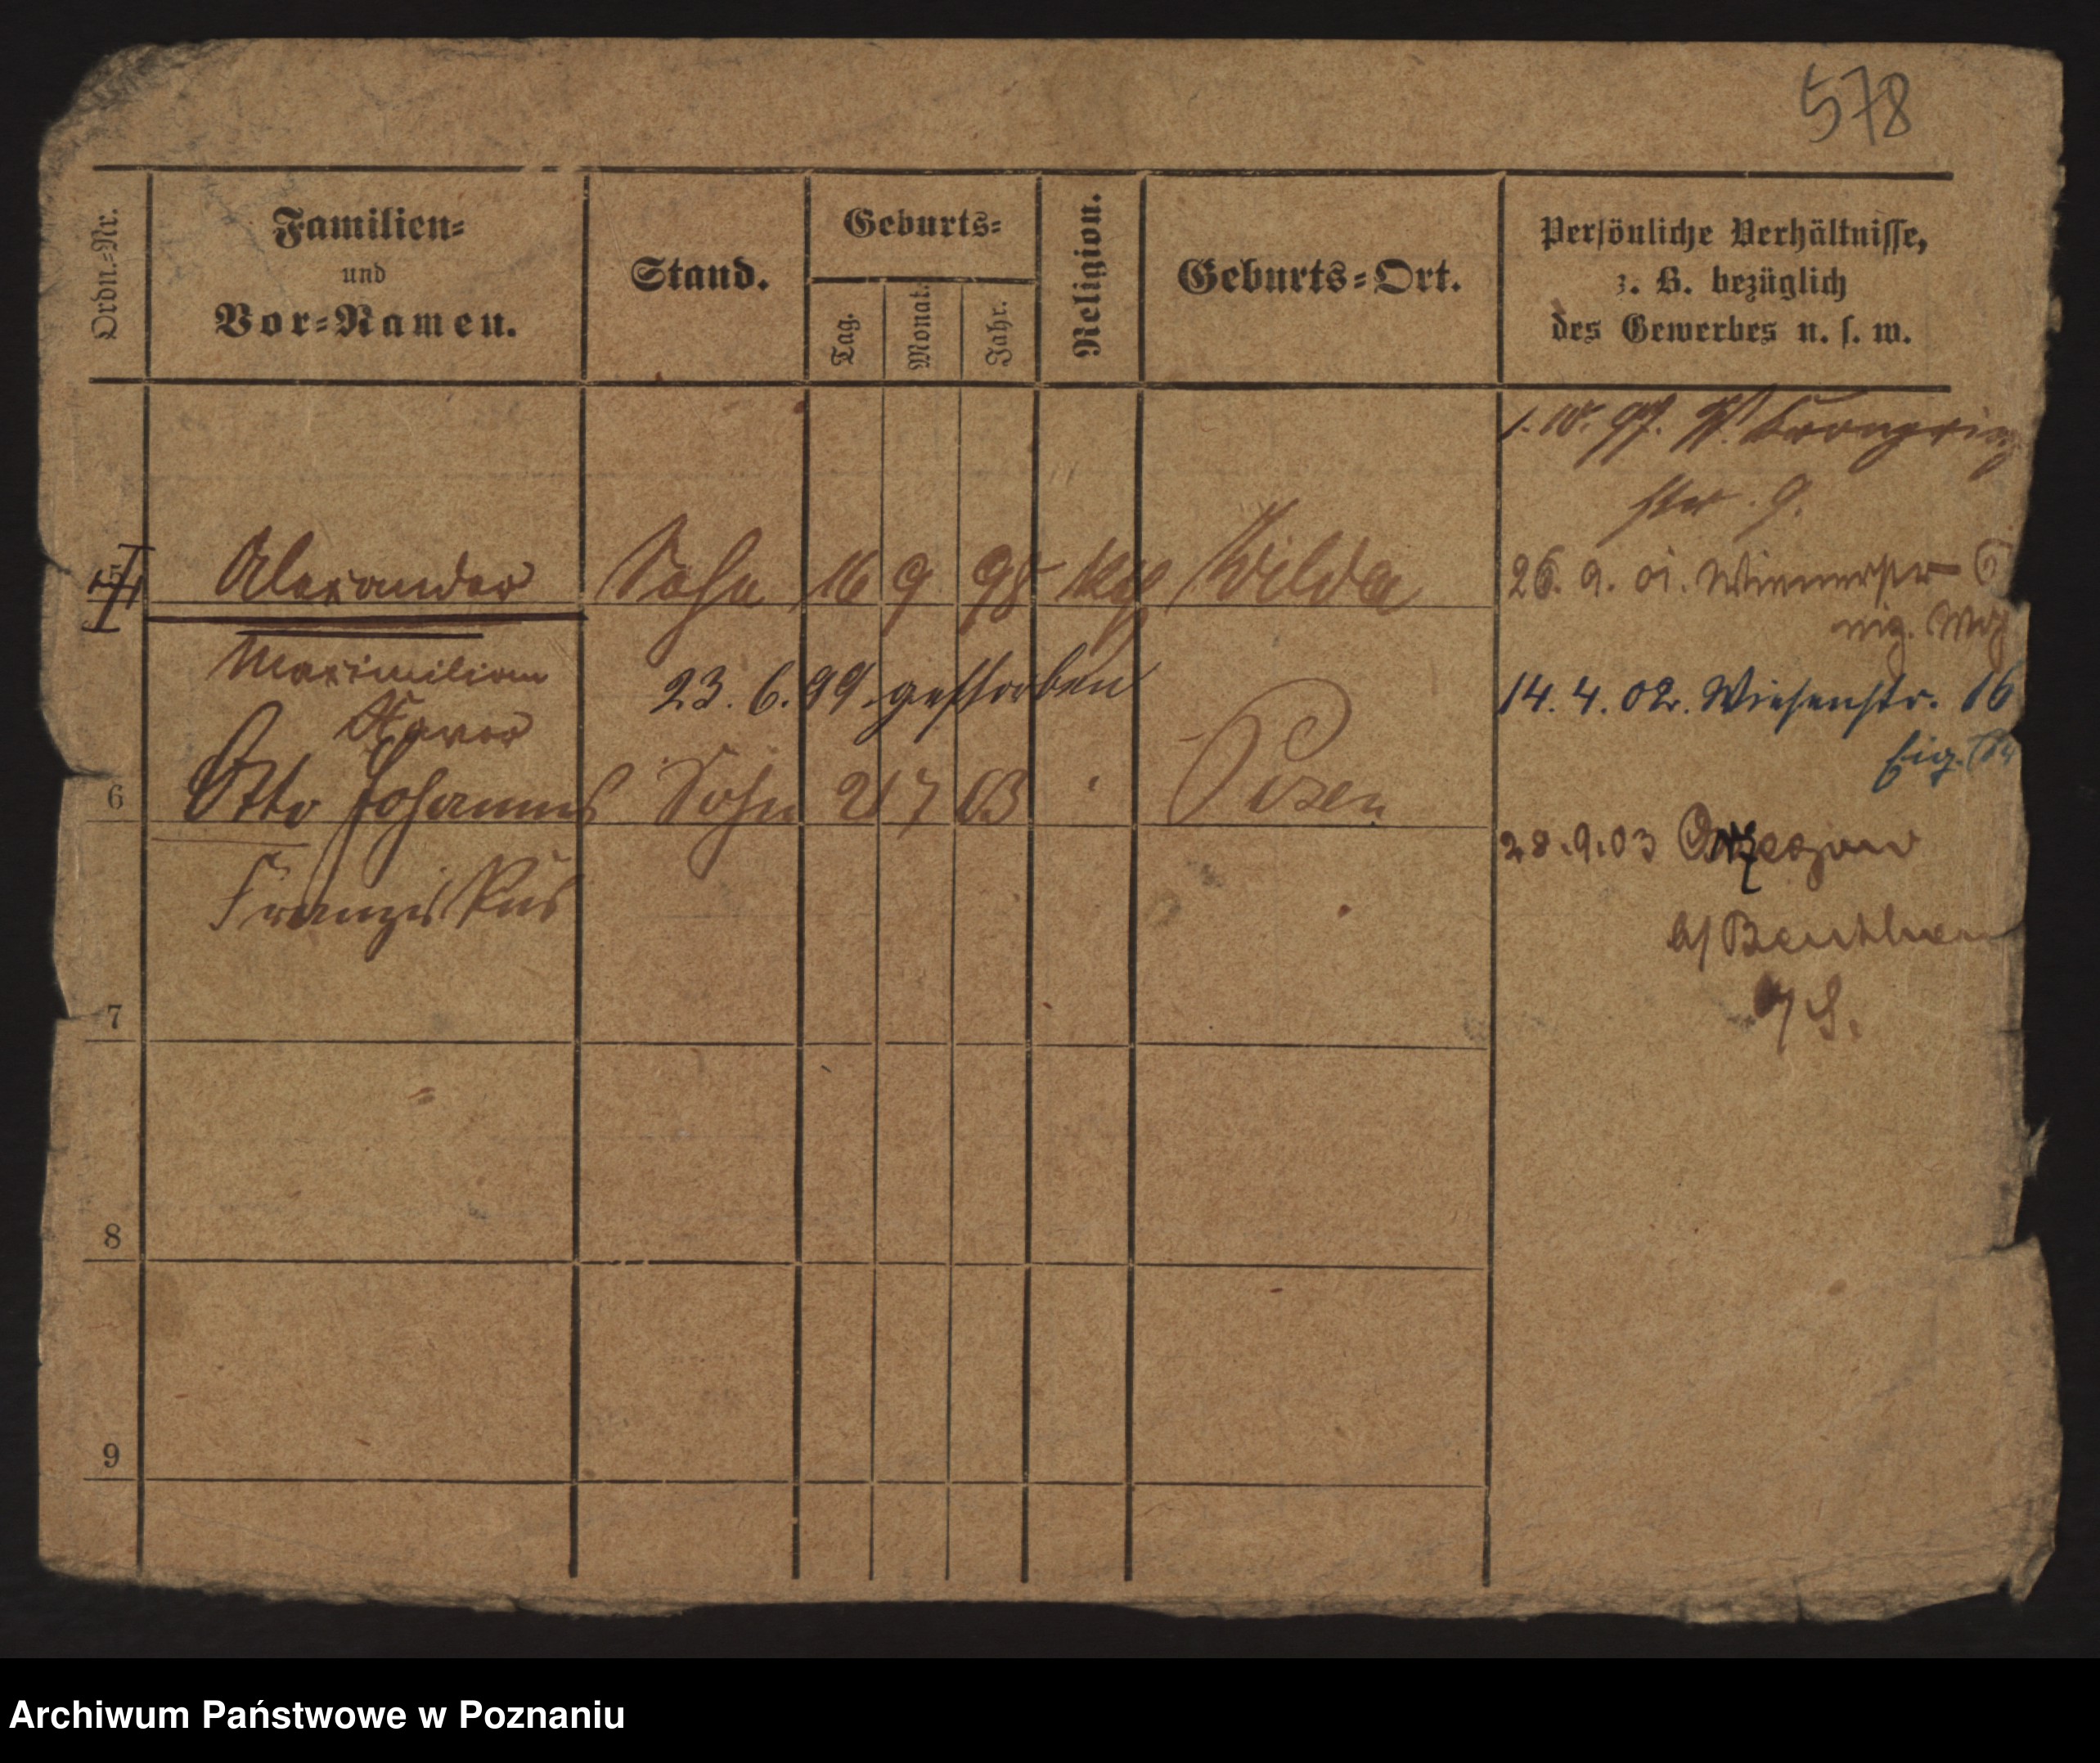 578
Ordn.-Nr.
Familien-
und
Vor-Namen.
Stand.
Geburts-
Tag.
Monat.
Jahr.
Religion.
Geburts-Ort.
Persönliche Verhältnisse,
z. B. bezüglich
des Gewerbes u. s. w.
1. 10. 97. W. Kronprinz
str. 9.
5 Alexander Sohn 16 9 98 kg Wilda
26. 9. 01. Wienerstr 6
Maximilian
23. 6. 99. gestorben
14. 4. 02. Wiesenstr. 16
Xaver
Eig.
6 Otto Johannes Sohn 21 7 03 Posen
28.9.03
Franziskus
b/ Beuthen
7
o/ S.
8
9
Archiwum Państwowe w Poznaniu